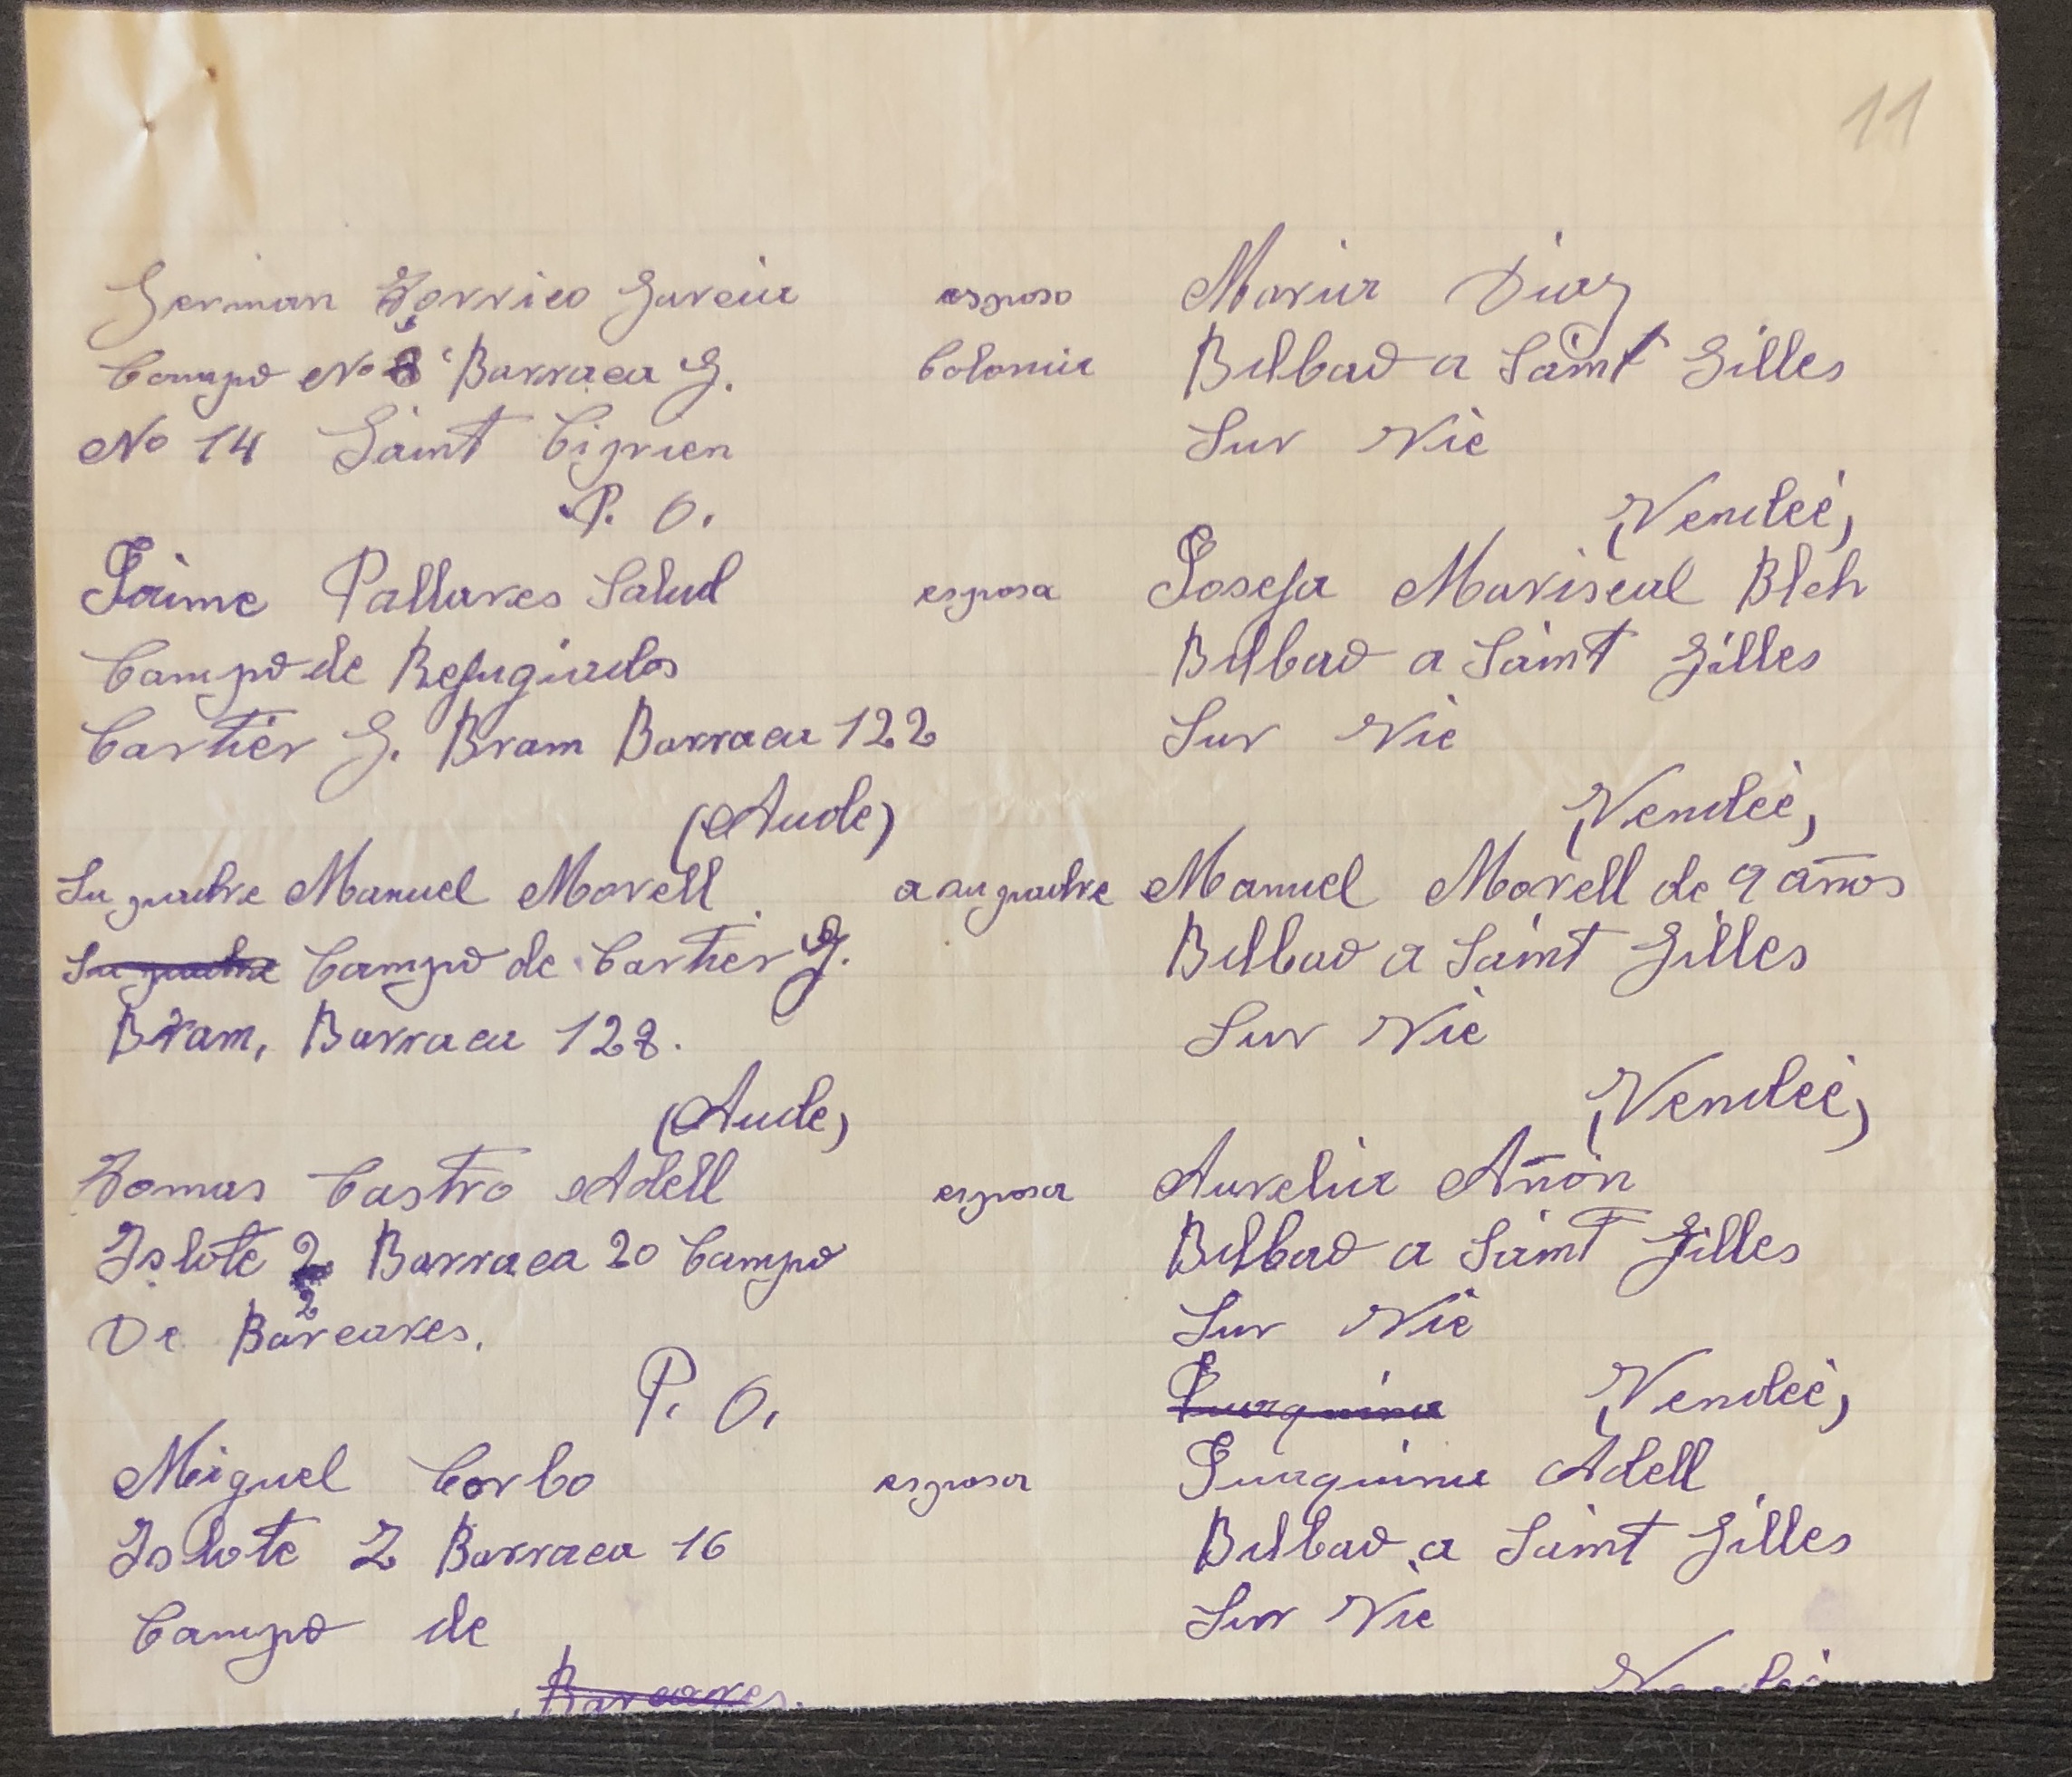 11
German Torrico Garcia esposo Maria Diaz
Campo No 8 Barraca G. Colonia Bilbao a Saint Gilles
No 14 Saint Ciprien Sur Vie
P. O. (Vendeé)
Jaime Pallares Salud esposa Josefa Mariscal Bleh
Campo de Refugiados Bilbao a Saint Gilles
Cartier G. Bram Barraca 122 Sur Vie
(Aude) (Vendeé)
Su padre Manuel Morell a su padre Manuel Morell de 9 años
Su padre Campo de Cartier G. Bilbao a Saint Gilles
Bram, Barraca 128. Sur Vie
(Aude) (Vendeé)
Tomas Castro Adell esposa Aurelia Añon
Islote 2 Barraca 20 Campo Bilbao a Saint Gilles
2
De Barcares. Sur Vie
P. O. Juaquina (Vendeé)
Miguel Corbo esposa Juaquina Adell
Islote Z Barraca 16 Bilbao a Saint Gilles
Campo de Sur Vie
Barcares. Vendeé